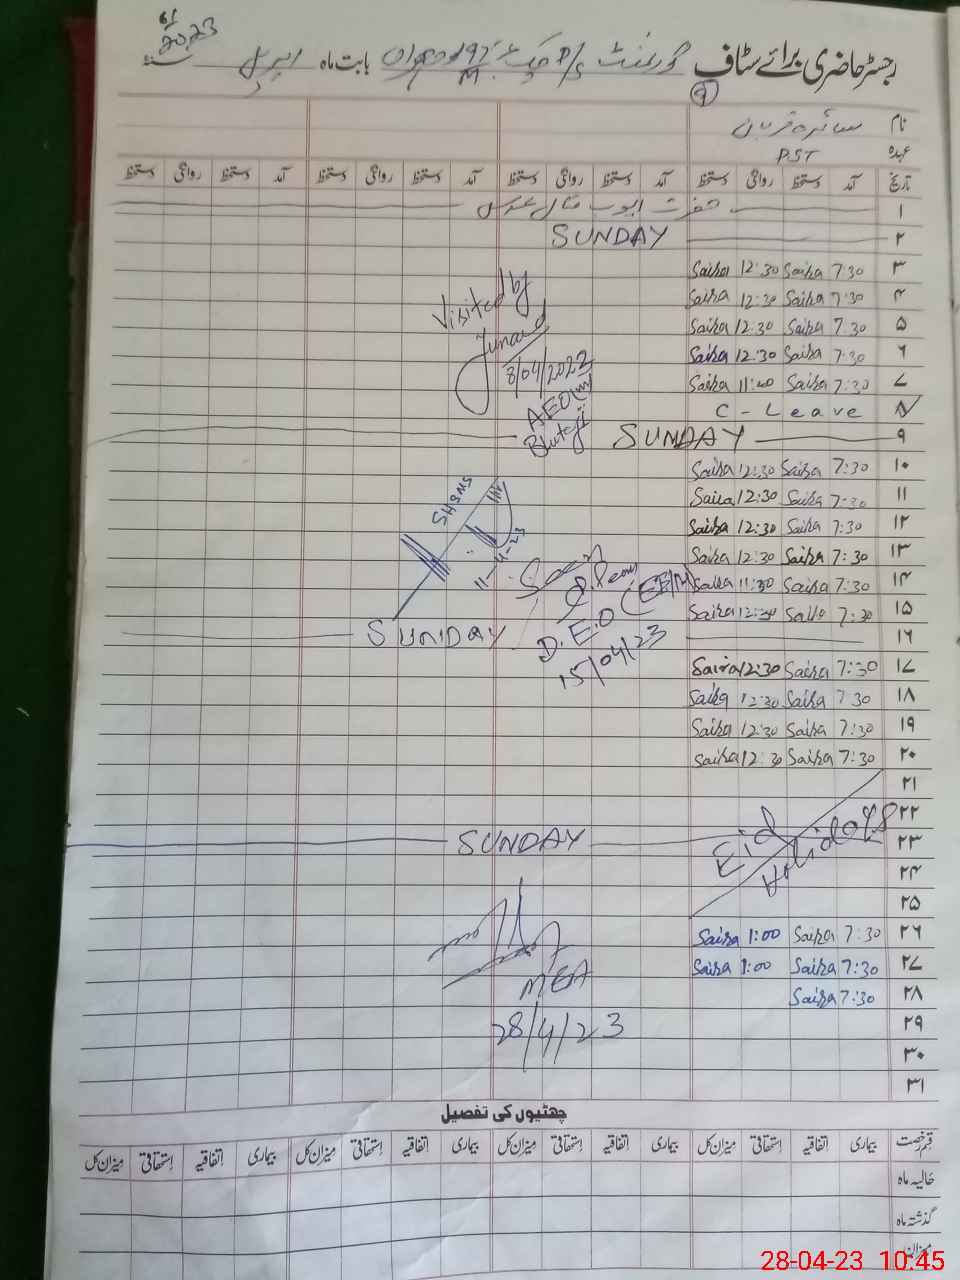 2023
رجسٹر حاضری برائے سٹاف گورنمنٹ P/S چک بابت ماہ اپریل
9
نام سائرہ قربان
عہدہ PST
تاریخ آمد دستخط روانگی دستخط آمد دستخط روانگی دستخط آمد دستخط روانگی دستخط آمد دستخط روانگی دستخط
۱ حضرت
۲ SUNDAY
۳ 7:30 Saira 12:30 Saira
۴ 7:30 Saira 12:30 Saira
۵ 7:30 Saira 12:30 Saira
۶ 7:30 Saira 12:30 Saira
۷ 7:30 Saira 11:40 Saira
۸ C - Leave
۹ SUNDAY
Visited by
Junaid
8/04/2023
AEO (M)
۱۰ 7:30 Saira 12:30 Saira
۱۱ 7:30 Saira 12:30 Saira
۱۲ 7:30 Saira 12:30 Saira
۱۳ 7:30 Saira 12:30 Saira
۱۴ 7:30 Saira 11:30 Saira
۱۵ 7:30 Saira 12:30 Saira
۱۶ SUNDAY
SHSMS
11-4-23
Seen
D.E.O (EE/M)
15/04/23
۱۷ 7:30 Saira 12:30 Saira
۱۸ 7:30 Saira 12:30 Saira
۱۹ 7:30 Saira 12:30 Saira
۲۰ 7:30 Saira 12:30 Saira
۲۱
۲۲
۲۳ SUNDAY
۲۴
۲۵
Eid
Holidays
۲۶ 7:30 Saira 1:00 Saira
۲۷ 7:30 Saira 1:00 Saira
۲۸ 7:30 Saira
۲۹
۳۰
۳۱
MEA
28/4/23
چھٹیوں کی تفصیل
قسم رخصت بیماری اتفاقیہ استحقاقی میزان کل بیماری اتفاقیہ استحقاقی میزان کل بیماری اتفاقیہ استحقاقی میزان کل بیماری اتفاقیہ استحقاقی میزان کل
حالیہ ماہ
گذشتہ ماہ
28-04-23 10:45